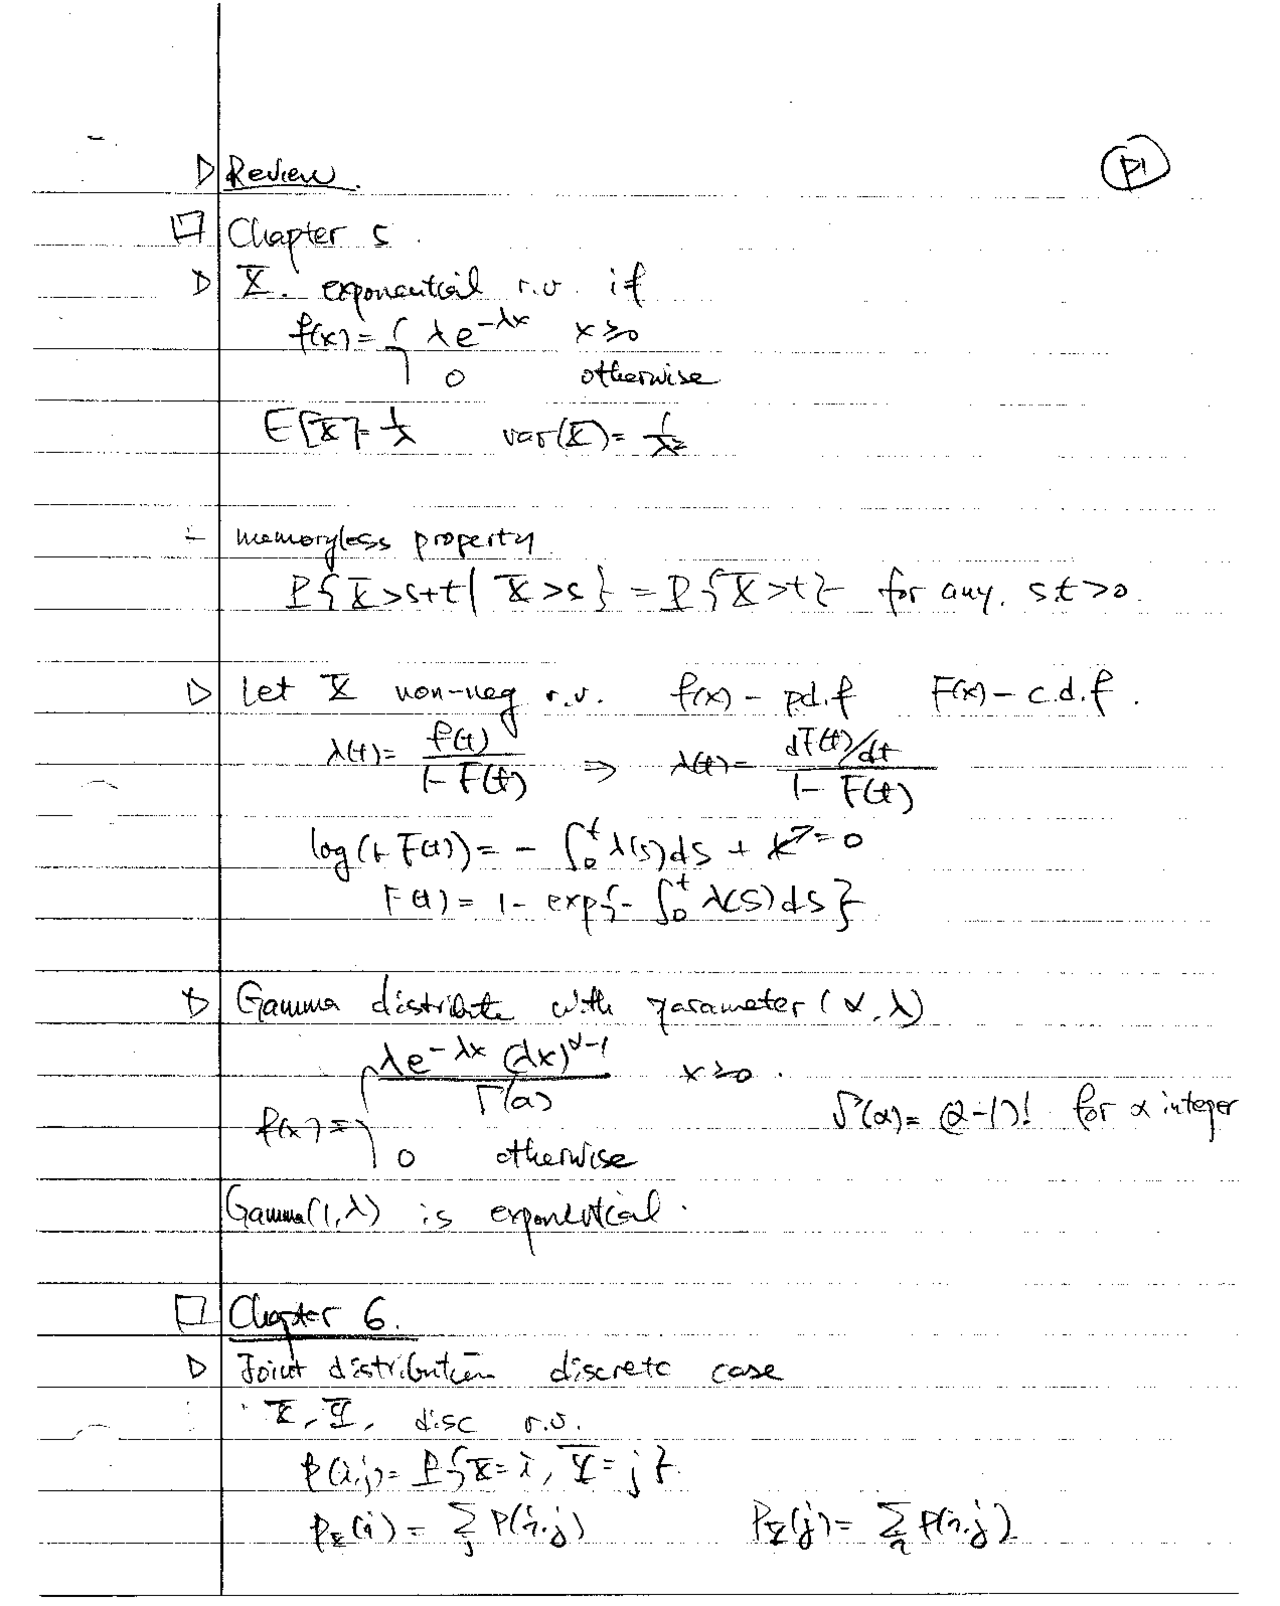 ▷ Review. P1
□ Chapter 5.
▷ X. exponential r.v. if
f(x) = { λe^{-λx} x≥0
0 otherwise
E[X] = 1/λ var(X) = 1/λ²
- memoryless property
P{X>s+t | X>s} = P{X>t} for any. s.t>0.
▷ Let X non-neg r.v. f(x) - p.d.f F(x) - c.d.f.
λ(t) = f(t) / 1-F(t) ⇒ λ(t) = dF(t)/dt / 1-F(t)
log(1-F(t)) = - ∫₀ᵗ λ(s)ds + k → = 0
F(t) = 1 - exp{- ∫₀ᵗ λ(s)ds}
▷ Gamma distribute with parameter (α, λ)
f(x) = { λe^{-λx} (λx)^{α-1} / Γ(α) x≥0.
Γ(α) = (α-1)! for α integer
0 otherwise
Gamma(1,λ) is exponential.
□ Chapter 6.
▷ Joint distribution discrete case
X, Y, disc r.v.
p(i,j) = P{X=i, Y=j}.
p_X(i) = Σ_j p(i,j) p_Y(j) = Σ_i p(i,j)